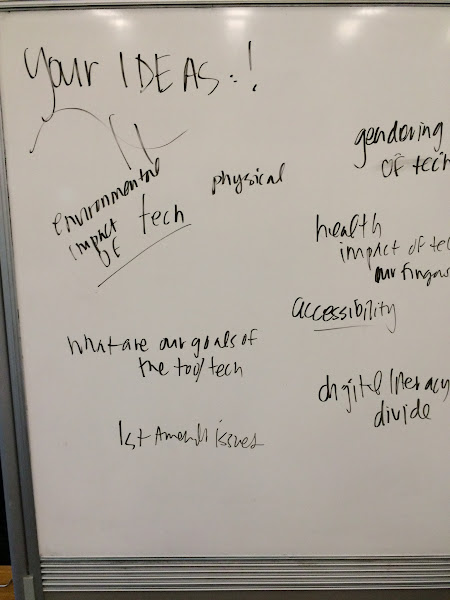 Your IDEAS:!
environmental
impact
OF tech
physical
gendering
OF tech
health
impact of tec
our fingers
accessibility
What are our goals of
the tool/tech
digital literacy
divide
1st Amendt issues